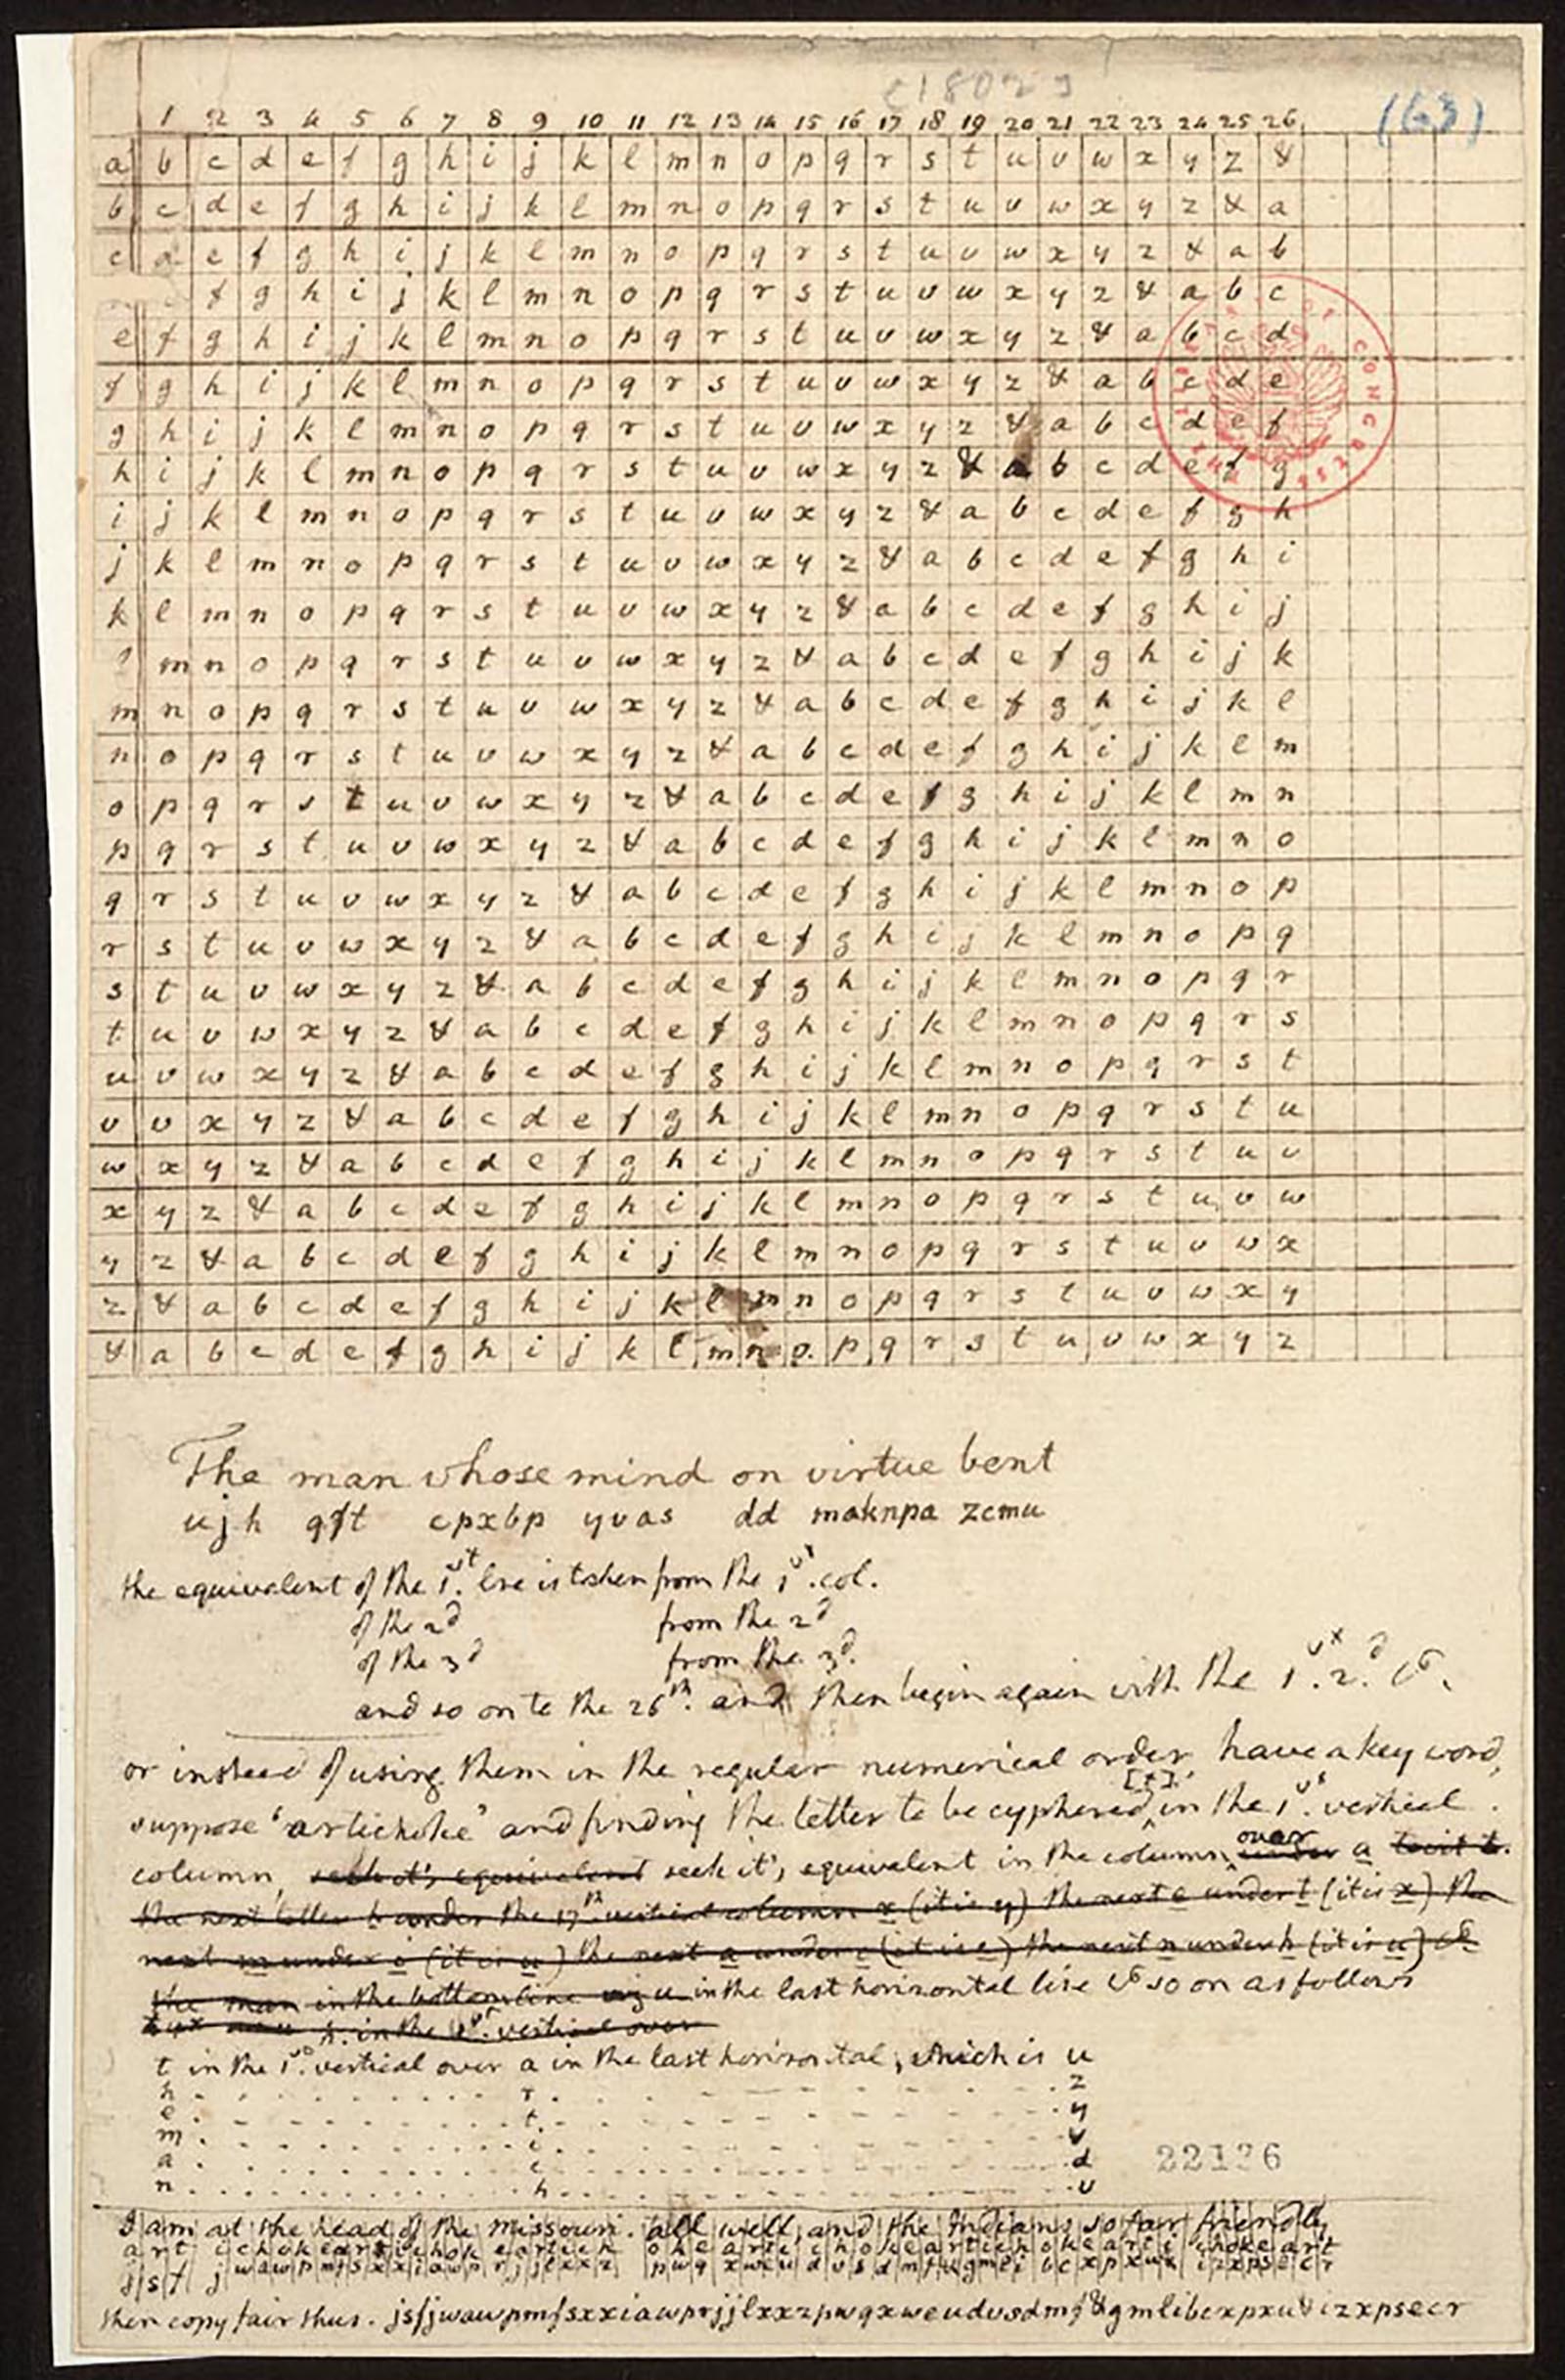 c1802?
(63)
1 2 3 4 5 6 7 8 9 10 11 12 13 14 15 16 17 18 19 20 21 22 23 24 25 26
a b c d e f g h i j k l m n o p q r s t u v w x y z &
b c d e f g h i j k l m n o p q r s t u v w x y z & a
c d e f g h i j k l m n o p q r s t u v w x y z & a b
f g h i j k l m n o p q r s t u v w x y z & a b c
e f g h i j k l m n o p q r s t u v w x y z & a b c d
f g h i j k l m n o p q r s t u v w x y z & a b c d e
g h i j k l m n o p q r s t u v w x y z & a b c d e f
h i j k l m n o p q r s t u v w x y z & a b c d e f g
i j k l m n o p q r s t u v w x y z & a b c d e f g h
j k l m n o p q r s t u v w x y z & a b c d e f g h i
k l m n o p q r s t u v w x y z & a b c d e f g h i j
l m n o p q r s t u v w x y z & a b c d e f g h i j k
m n o p q r s t u v w x y z & a b c d e f g h i j k l
n o p q r s t u v w x y z & a b c d e f g h i j k l m
o p q r s t u v w x y z & a b c d e f g h i j k l m n
p q r s t u v w x y z & a b c d e f g h i j k l m n o
q r s t u v w x y z & a b c d e f g h i j k l m n o p
r s t u v w x y z & a b c d e f g h i j k l m n o p q
s t u v w x y z & a b c d e f g h i j k l m n o p q r
t u v w x y z & a b c d e f g h i j k l m n o p q r s
u v w x y z & a b c d e f g h i j k l m n o p q r s t
v v x y z & a b c d e f g h i j k l m n o p q r s t u
w x y z & a b c d e f g h i j k l m n o p q r s t u v
x y z & a b c d e f g h i j k l m n o p q r s t u v w
y z & a b c d e f g h i j k l m n o p q r s t u v w x
z & a b c d e f g h i j k l m n o p q r s t u v w x y
& a b c d e f g h i j k l m n o p q r s t u v w x y z
CONGRESS
The man whose mind on virtue bent
ujh qft cpxbp yvas dd maknpa zcmu
the equivalent of the 1st. line is taken from the 1st. col.
of the 2d from the 2d
of the 3d from the 3d.
and so on to the 26th. and then begin again with the 1st. 2d. &c.
or instead of using them in the regular numerical order, have a key word,
suppose 'artichoke' and finding the letter to be cyphered [t] in the 1st. vertical
column, seek it's equivalent seek it's equivalent in the column, over under a
the next letter h under the 17th vertical column x (it is y) the next e under t (it is x) the
next m under i (it is u) the next a under c (it is e) the next n under h (it is u) &c
the man in the bottom line in the last horizontal line & so on as follows
h. in the 1st. vertical over
t in the 1st. vertical over a in the last horizontal, which is u
h . . . r . . . z
e . . . t . . . y
m . . . i . . . v
a . . . c . . . d
n . . . h . . . v
22126
I am at the head of the Missouri. all well, and the Indians so far friendly.
art ichokeartichok eartich okearti chokeartichokearti chokeart
jsfjwawpmfsxxiawprjjlxxzpwqxweudvsdmf&gmlibcxpxu&izxpsecr
then copy fair thus. jsfjwawpmfsxxiawprjjlxxzpwqxweudvsdmf&gmlibexpxu&izxpsecr